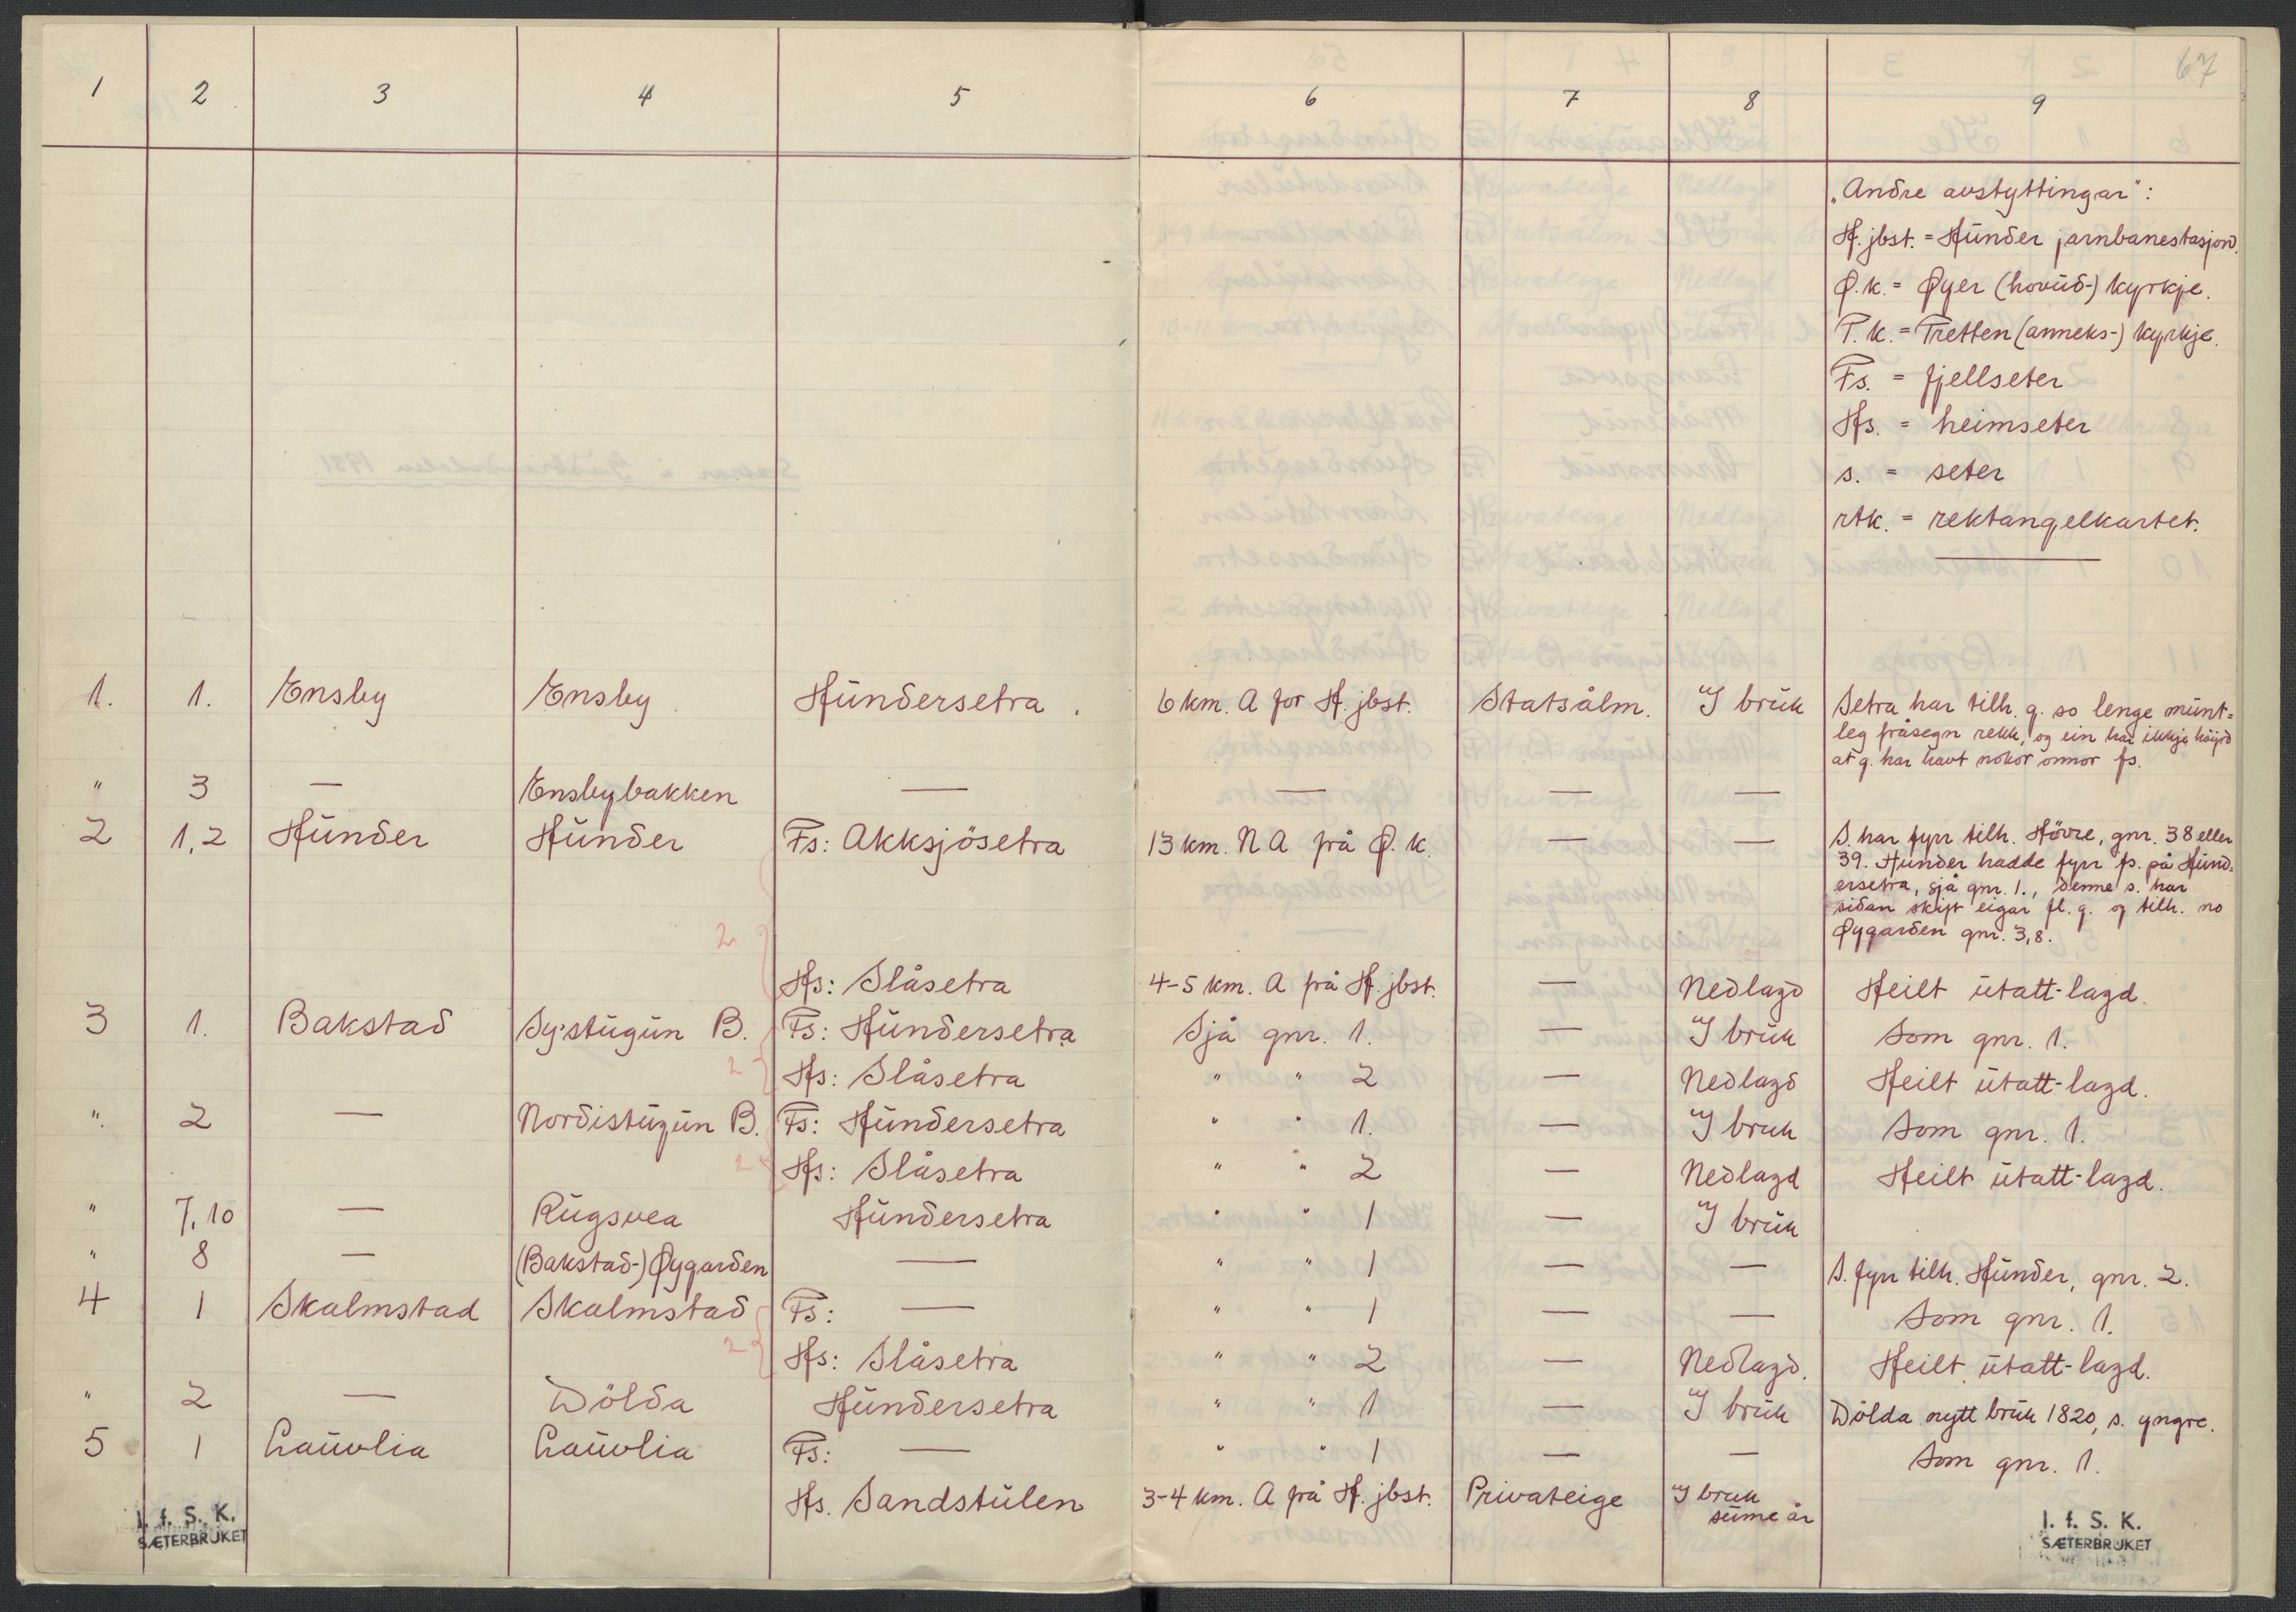 67
1 2 3 4 5 6 7 8 9
„Andre avstyttingar":
H. jbst. = Hunder jarnbanestasjon.
Ø. k. = Øyer (hovud-) kyrkje.
T. k. = Tretten (anneks-) kyrkje.
Fs. = fjellseter
Hs. = heimseter
s. = seter
rtk. = rektangelkartet.
1. 1. Ensby Ensby. Hundersetra. 6 km. A for H. jbst. Statsålm. I bruk Setra har tilh. g. so lenge munt-
leg fråsegn rekk, og ein har ikkje høyrd
at g. har havt nokor onnor fs.
" 3 — Ensbybakken — — — —
2 1,2 Hunder Hunder Fs: Akksjösetra 13 km. N A frå Ø. k. — — S. har fyrr tilh. Hövre, gnr. 38 eller
39. Hunder hadde fyrr fs. på Hund-
ersetra, sjå gnr. 1., denne s. har
sidan skift eigar fl. g. og tilh. no
Øygarden gnr. 3,8.
2
Hs: Slåsetra 4-5 km. A frå H. jbst. — Nedlagd Heilt utatt-lagd.
3 1. Bakstad Sy'stugun B. Fs: Hundersetra Sjå gnr. 1. — I bruk Som gnr. 1.
2 Hs: Slåsetra " " 2 — Nedlagd Heilt utatt-lagd.
" 2 — Nordistugun B. Fs: Hundersetra " " 1. — I bruk Som gnr. 1.
2 Hs: Slåsetra " " 2 — Nedlagd Heilt utatt-lagd.
" 7,10 — Rugsvea Hundersetra " " 1 — I bruk
" 8 — (Bakstad-) Øygarden — " " 1 — — S. fyrr tilh. Hunder, gnr. 2.
4 1 Skalmstad Skalmstad Fs: — " " 1 — — Som gnr. 1.
2 Hs: Slåsetra " " 2 — Nedlagd. Heilt utatt-lagd.
" 2 — Dölda Hundersetra " " 1 — I bruk Dölda nytt bruk 1820, s. yngre.
5 1 Lauvlia Lauvlia Fs: — " " 1 — — Som gnr. 1.
Hs. Sandstulen 3-4 km. A frå H. jbst. Privateige I bruk
sume år
I. f. S. K.
SÆTERBRUKET
I. f. S. K.
SÆTERBRUKET